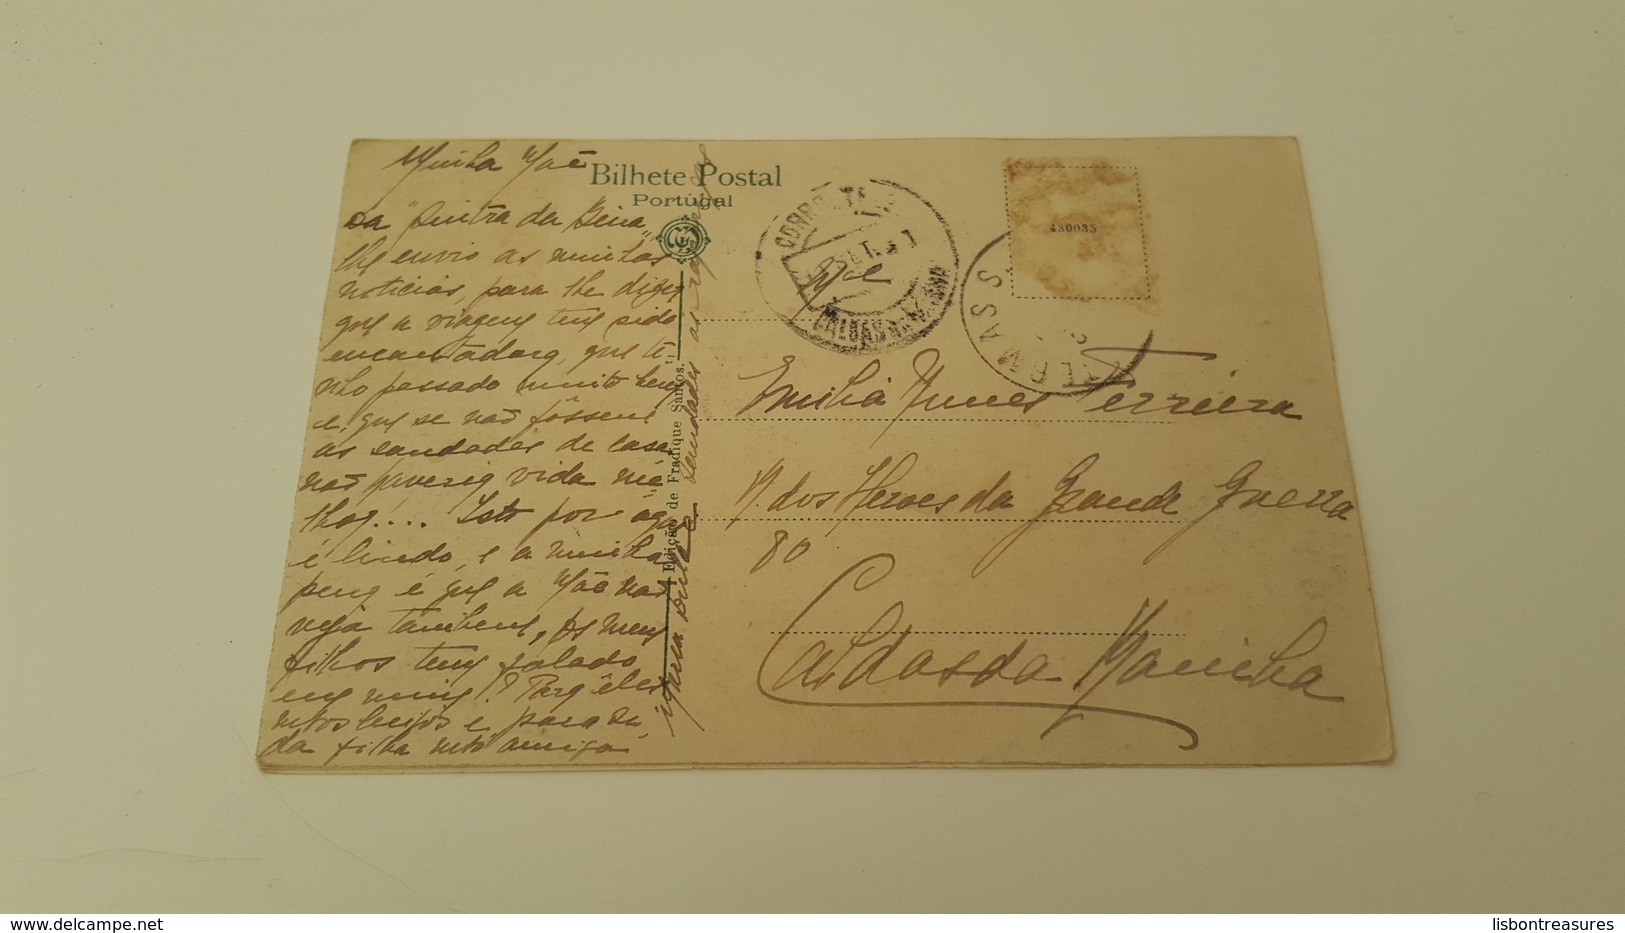 Minha Mãe
Da "Sintra da Beira"
lhe envio as muitas
noticias, para lhe dizer
que a viagem tem sido
encantadora, que te
nho passado muito bem
e, que se não fôssem
as saudades de casa
não haveria vida me
lhor!... Isto por aqui
é lindo, e a minha
pena é que a Mãe não
veja tambem. Os meus
filhos tem falado
em mim!? Para êles
mtos beijos e para si
da filha mto amiga
Maria
saudades ás
Bilhete Postal
Portugal
Edição de Fradique Santos.
CORREIO
SET. 31
CALDAS DA RAINHA
TERMAS S
430035
Emilia Nunes Ferreira
R dos Herões da Grande Guerra
80
Caldas da Rainha
lisbontreasures